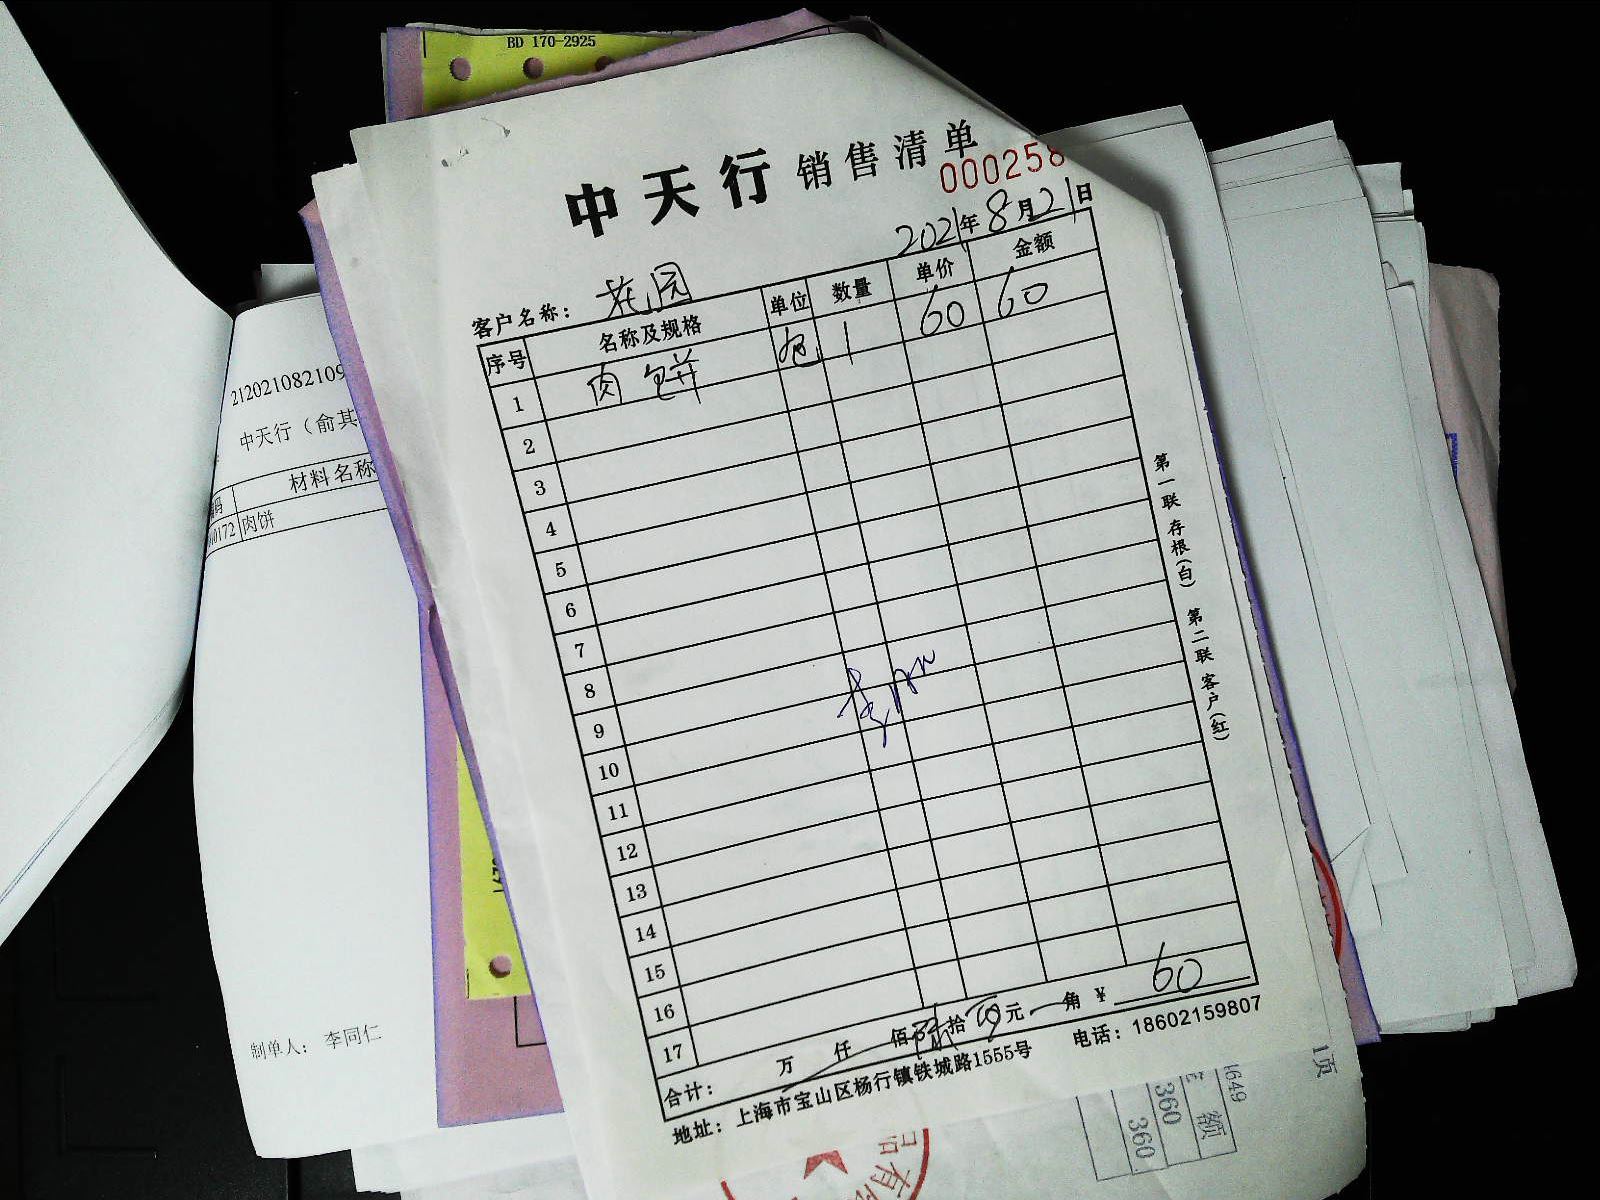 BD 170-2925
中天行销售清单
000258
2021年8月21日
客户名称：花园
序号 名称及规格 单位 数量 单价 金额
1 肉饼 包 1 60 60
2
3
4
5
6
7
8
9
10
11
12
13
14
15
16
17
合计： 万 仟 佰 陆拾 元 角 ¥ 60
地址：上海市宝山区杨行镇铁城路1555号 电话：18602159807
第一联存根(白) 第二联客户(红)
212021082109
中天行（俞其
材料名称
0172 肉饼
制单人： 李同仁
1页
额
360
360